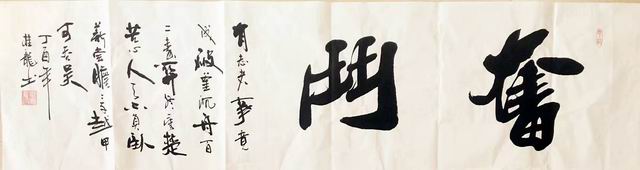 奮鬥
有志者事竟
成破釜沉舟百
二秦關终屬楚
苦心人天不負臥
薪尝膽三千越甲
可吞吴
丁酉年
桂龍书